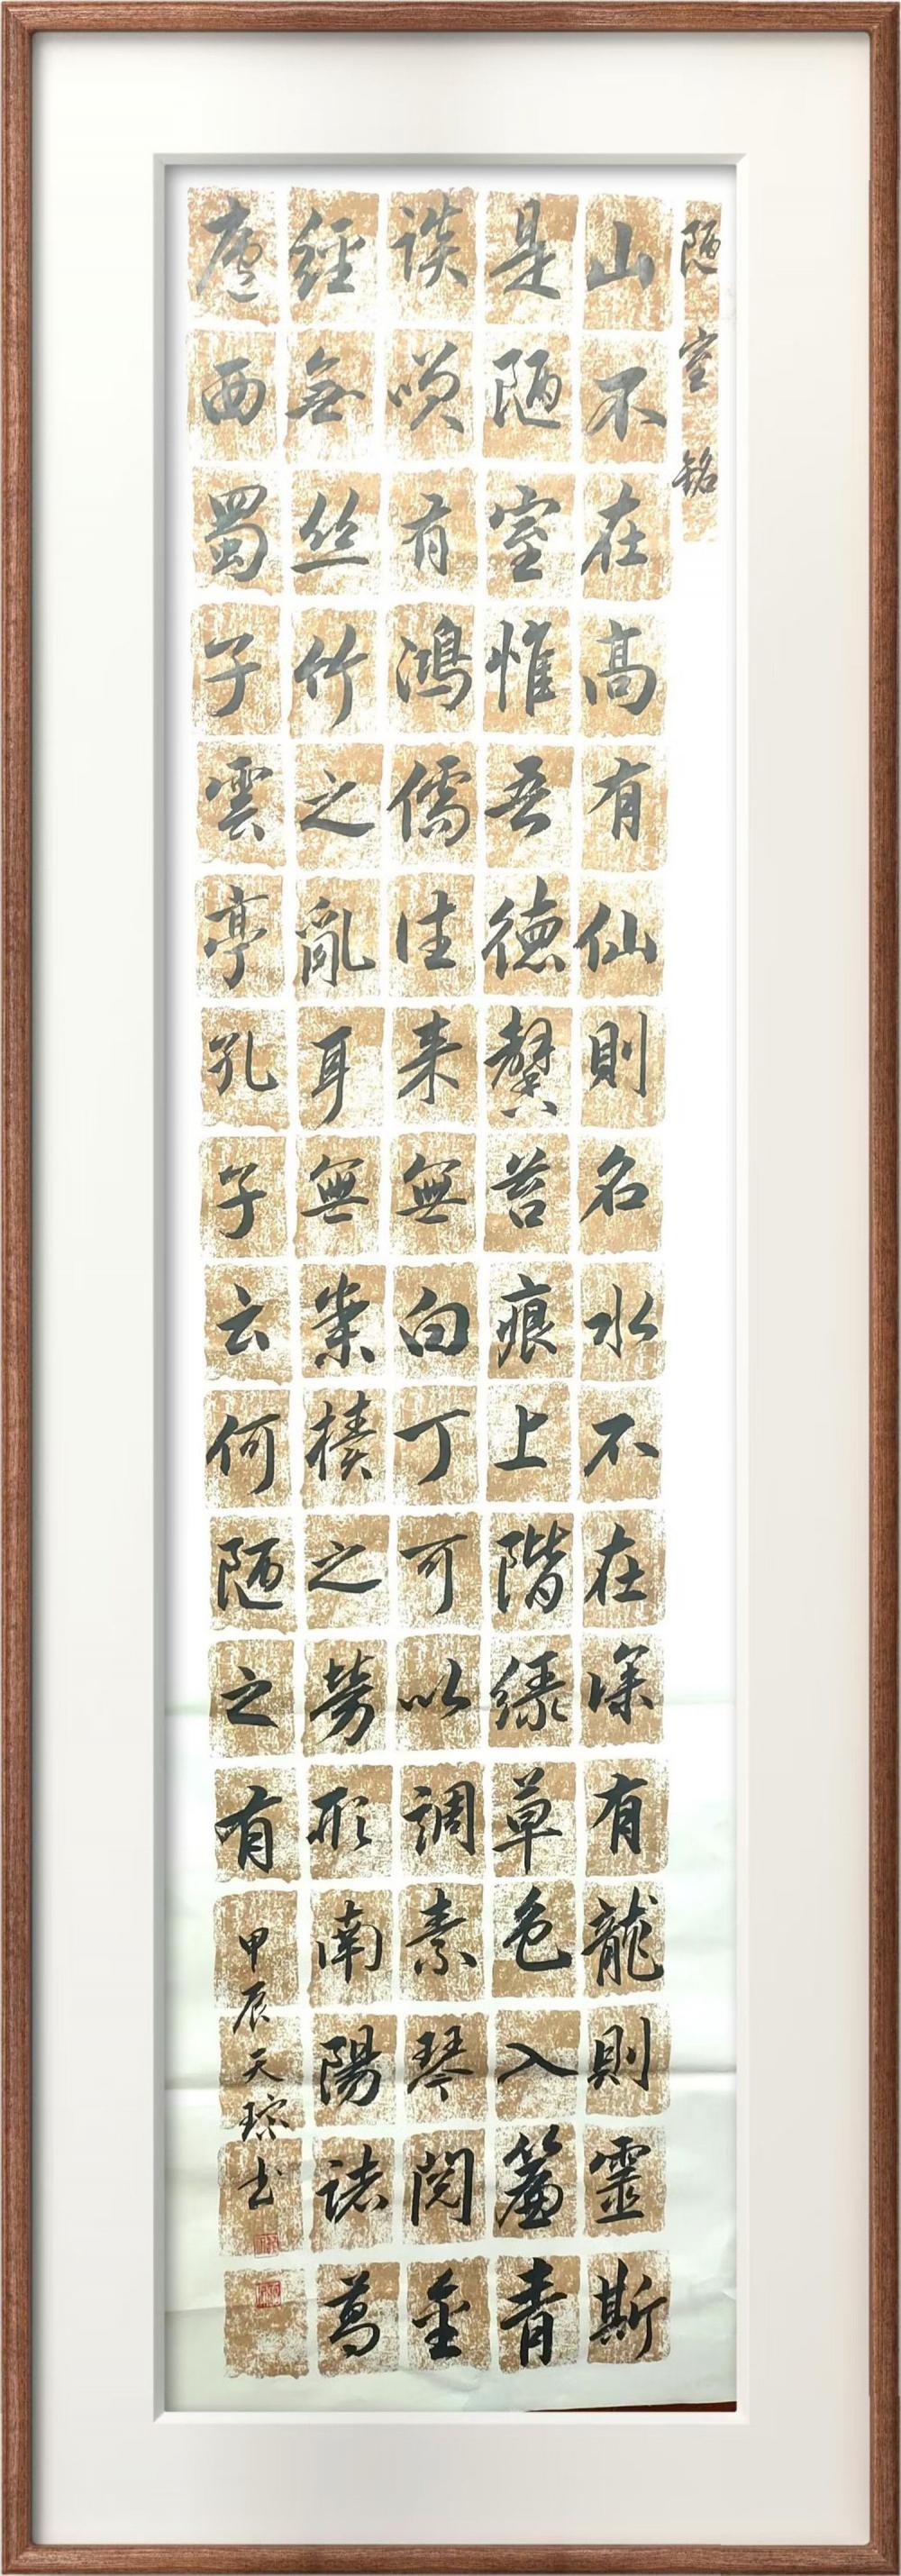 陋室铭
山不在高有仙則名水不在深有龍則靈斯
是陋室惟吾德馨苔痕上階緑草色入簾青
談笑有鴻儒往来無白丁可以調素琴閲金
經無丝竹之亂耳無案牘之劳形南陽諸葛
廬西蜀子雲亭孔子云何陋之有
甲辰天琮书